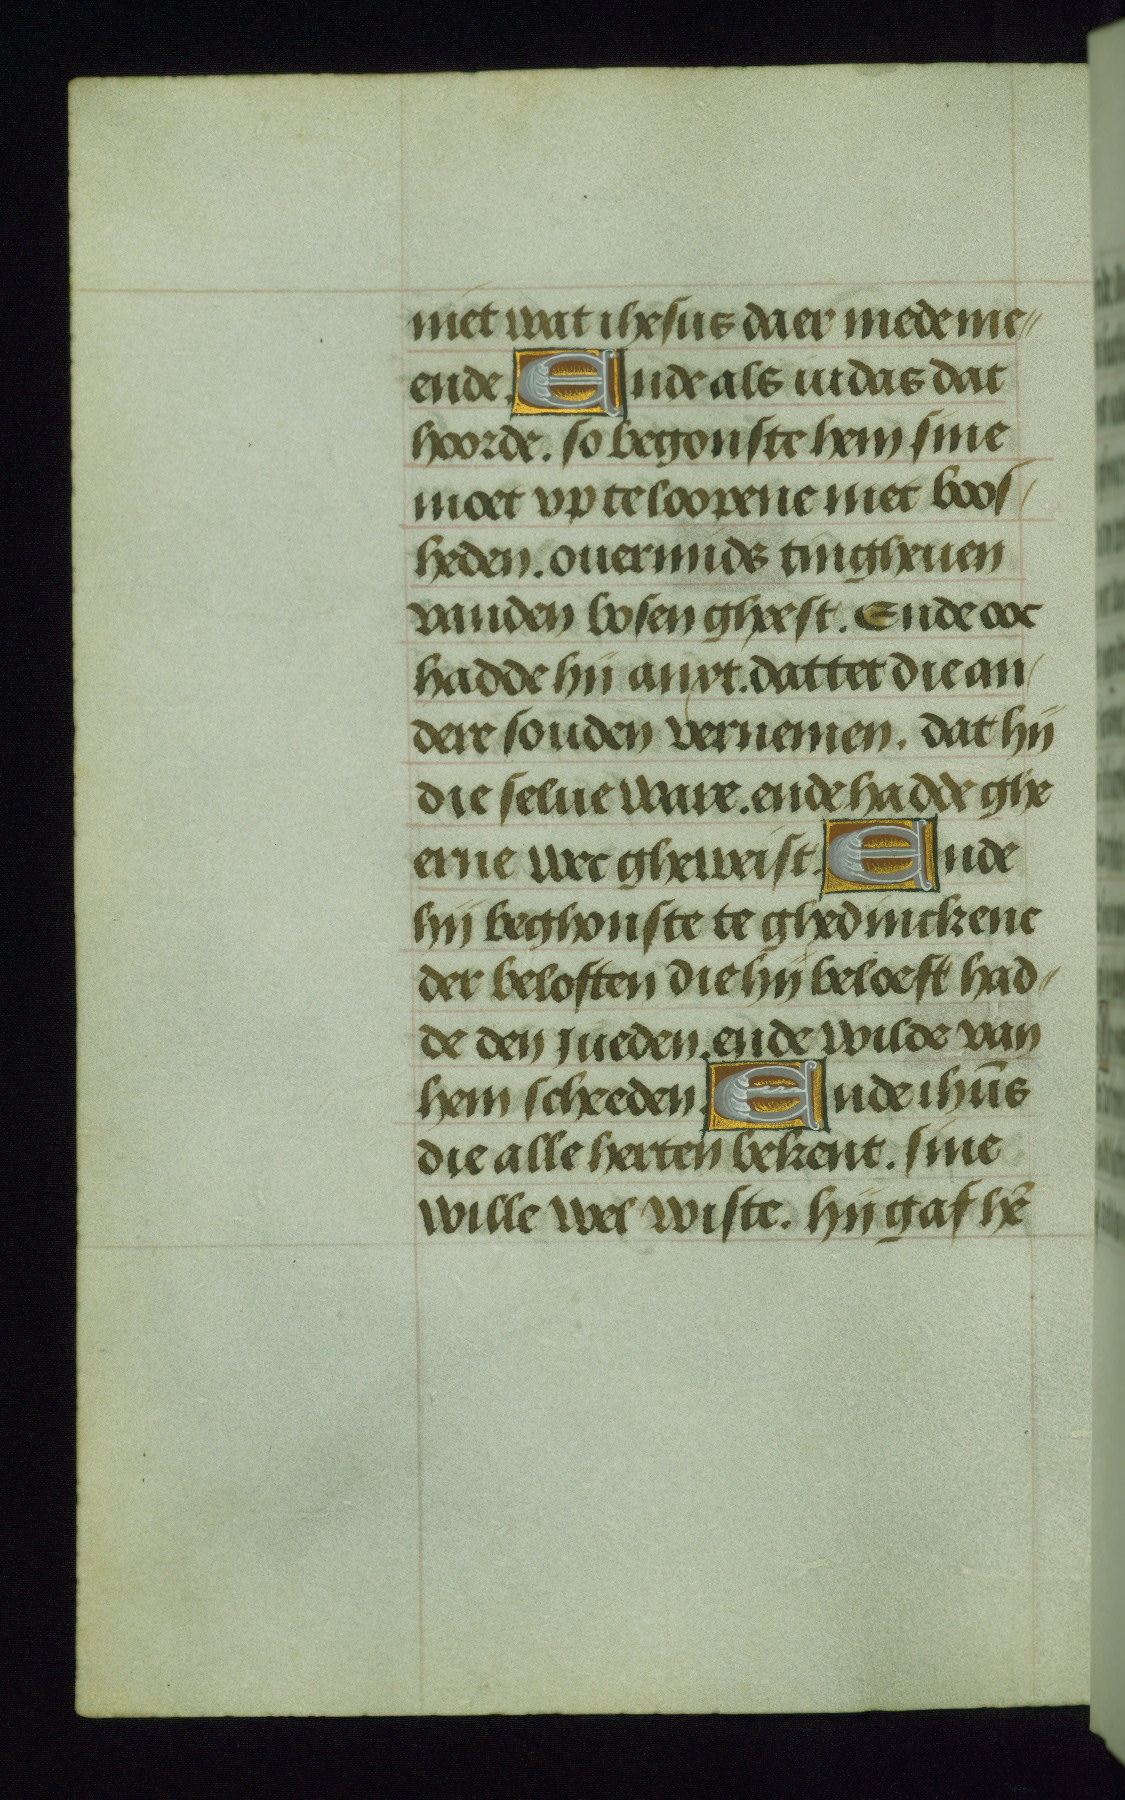 niet wat ihesus daer mede me„
ende. Ende als iudas dat
hoorde. so begonste hem sine
moet vp te loopene met boos/
heden. ouermids tingheuen
vanden bosen gheest. Ende ooc
hadde hij anxt. dattet die an/
dere souden vernemen. dat hij
die selue ware. ende hadde ghe
erne wec gheweist. Ende
hij beghonste te ghedinckene
der beloften die hij beloeft had„
de den jueden. ende wilde van
hem scheeden. Ende ihūs
die alle herten bekent. sine
wille wel wiste. hij gaf hē